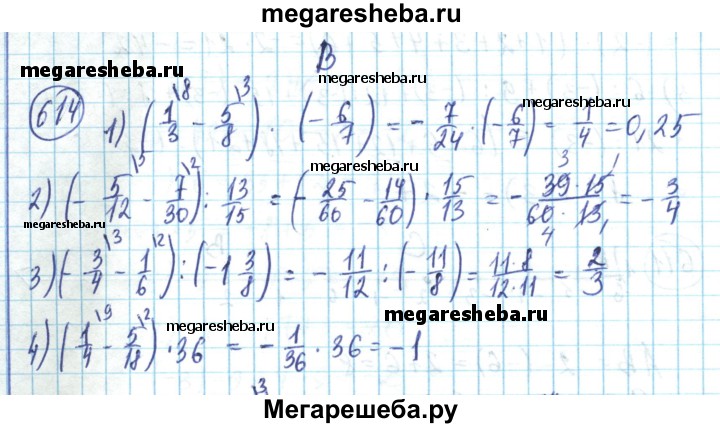 megaresheba.ru
В
megaresheba.ru megaresheba.ru
614 1) (1/3 \8 − 5/8 \3) · (−6/7) = −7/24 · (−6/7) = 1/4 = 0,25
megaresheba.ru
megaresheba.ru
2) (−5/12 \5 − 7/30 \2) : 13/15 = (−25/60 − 14/60) · 15/13 = −39·15/60·13 = −3/4
3 1
4 1
megaresheba.ru
3) (−3/4 \3 − 1/6 \2) : (−1 3/8) = −11/12 : (−11/8) = 11·8/12·11 = 2/3
megaresheba.ru
megaresheba.ru
4) (1/4 \9 − 5/18 \2) · 36 = −1/36 · 36 = −1
\3
Мегарешеба.ру